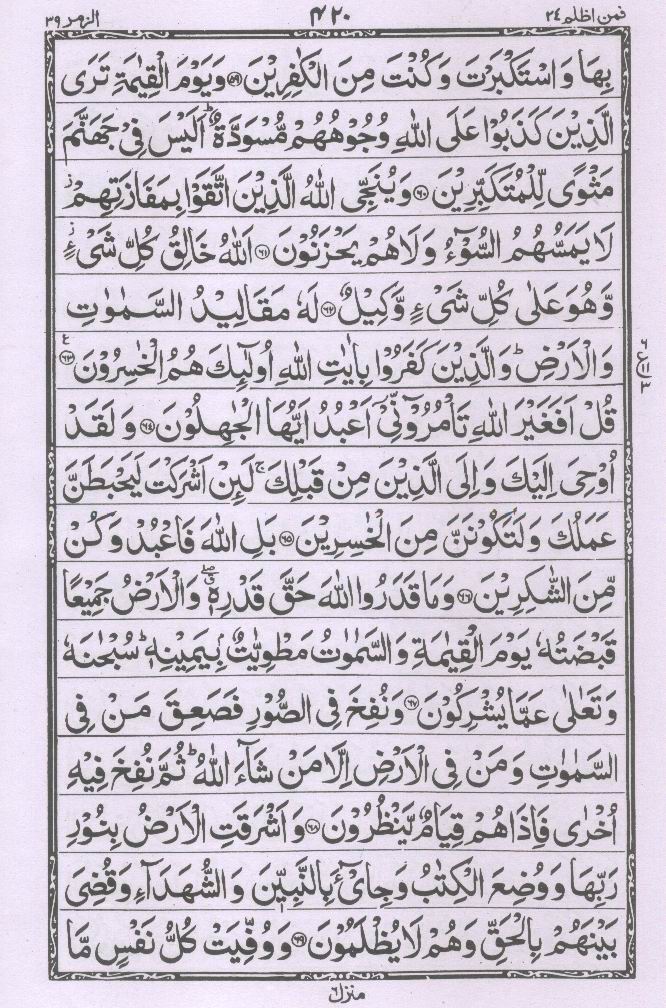 فمن اظلم ٢٤
٤٢٠
الزمر ٣٩
بِهَا وَاسْتَكْبَرْتَ وَكُنْتَ مِنَ الْكٰفِرِيْنَ ﴿۵۹﴾ وَيَوْمَ الْقِيٰمَةِ تَرَى
الَّذِيْنَ كَذَبُوْا عَلَى اللّٰهِ وُجُوْهُهُمْ مُّسْوَدَّةٌ ؕ اَلَيْسَ فِيْ جَهَنَّمَ
مَثْوًى لِّلْمُتَكَبِّرِيْنَ ﴿۶۰﴾ وَيُنَجِّى اللّٰهُ الَّذِيْنَ اتَّقَوْا بِمَفَازَتِهِمْ ز
لَا يَمَسُّهُمُ السُّوْٓءُ وَلَا هُمْ يَحْزَنُوْنَ ﴿۶۱﴾ اَللّٰهُ خَالِقُ كُلِّ شَيْءٍ ز
وَّهُوَ عَلٰى كُلِّ شَيْءٍ وَّكِيْلٌ ﴿۶۲﴾ لَهٗ مَقَالِيْدُ السَّمٰوٰتِ
وَالْاَرْضِ ؕ وَالَّذِيْنَ كَفَرُوْا بِاٰيٰتِ اللّٰهِ اُولٰٓئِكَ هُمُ الْخٰسِرُوْنَ ﴿۶۳﴾ ع
قُلْ اَفَغَيْرَ اللّٰهِ تَاْمُرُوْٓنِّيْٓ اَعْبُدُ اَيُّهَا الْجٰهِلُوْنَ ﴿۶۴﴾ وَلَقَدْ
اُوْحِيَ اِلَيْكَ وَاِلَى الَّذِيْنَ مِنْ قَبْلِكَ ۚ لَئِنْ اَشْرَكْتَ لَيَحْبَطَنَّ
عَمَلُكَ وَلَتَكُوْنَنَّ مِنَ الْخٰسِرِيْنَ ﴿۶۵﴾ بَلِ اللّٰهَ فَاعْبُدْ وَكُنْ
مِّنَ الشّٰكِرِيْنَ ﴿۶۶﴾ وَمَا قَدَرُوا اللّٰهَ حَقَّ قَدْرِهٖ وَالْاَرْضُ جَمِيْعًا
قَبْضَتُهٗ يَوْمَ الْقِيٰمَةِ وَالسَّمٰوٰتُ مَطْوِيّٰتٌۢ بِيَمِيْنِهٖ ؕ سُبْحٰنَهٗ
وَتَعٰلٰى عَمَّا يُشْرِكُوْنَ ﴿۶۷﴾ وَنُفِخَ فِى الصُّوْرِ فَصَعِقَ مَنْ فِى
السَّمٰوٰتِ وَمَنْ فِى الْاَرْضِ اِلَّا مَنْ شَآءَ اللّٰهُ ؕ ثُمَّ نُفِخَ فِيْهِ
اُخْرٰى فَاِذَا هُمْ قِيَامٌ يَّنْظُرُوْنَ ﴿۶۸﴾ وَاَشْرَقَتِ الْاَرْضُ بِنُوْرِ
رَبِّهَا وَوُضِعَ الْكِتٰبُ وَجِايْٓءَ بِالنَّبِيّٖنَ وَالشُّهَدَآءِ وَقُضِىَ
بَيْنَهُمْ بِالْحَقِّ وَهُمْ لَا يُظْلَمُوْنَ ﴿۶۹﴾ وَوُفِّيَتْ كُلُّ نَفْسٍ مَّا
منزل ٦